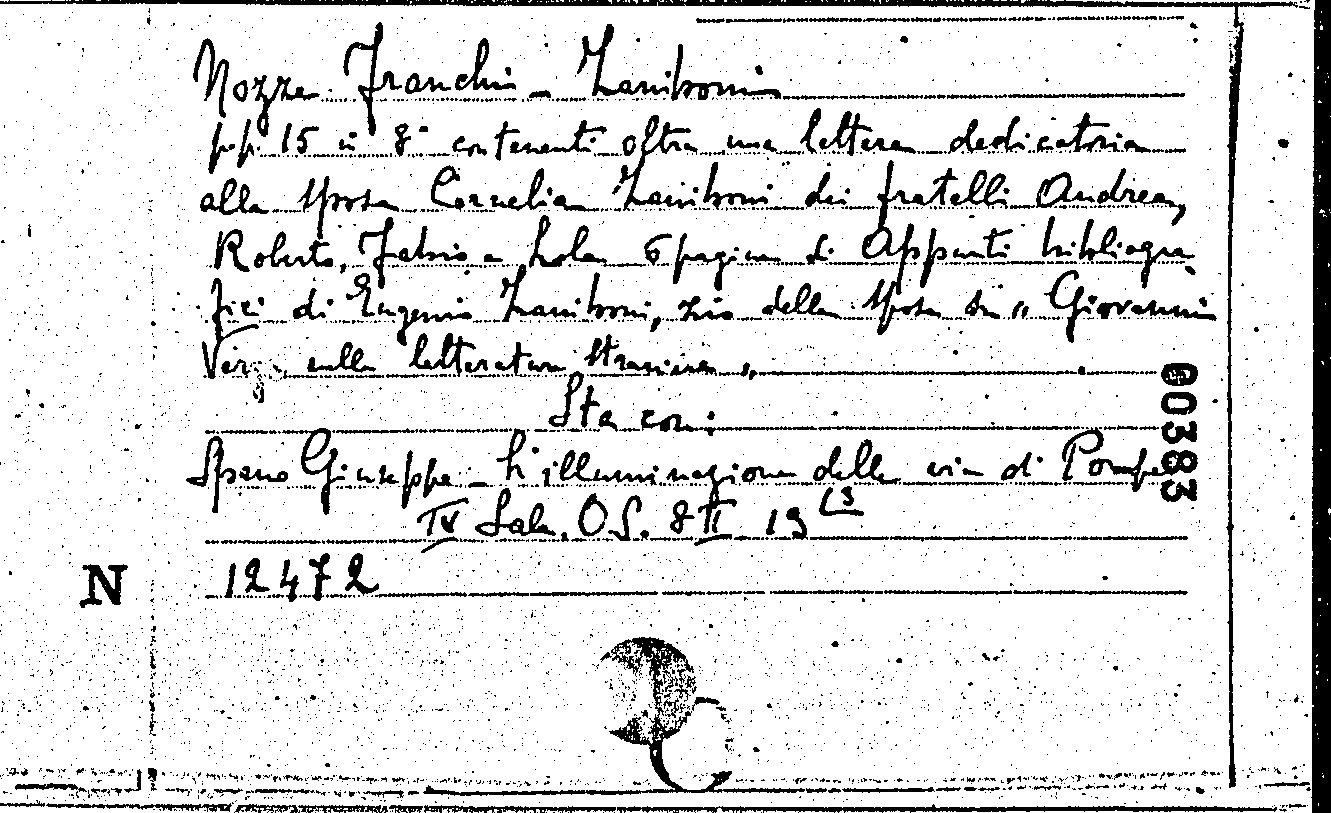 Nozze Franchi - Zaniboni
pp. 15 in 8° contenenti oltre una lettera dedicatoria
alla sposa Cornelia Zaniboni dei fratelli Andrea,
Roberto, Fabio e Lola 6 pagine di Appunti bibliogra
fici di Eugenio Zaniboni, zio della sposa su „ Giovanni
nella letteratura straniera „
Sta con:
Spano Giuseppe - L'illuminazione delle vie di Pompei
IV Sala. O S. 8 II 19
12472
N
00383